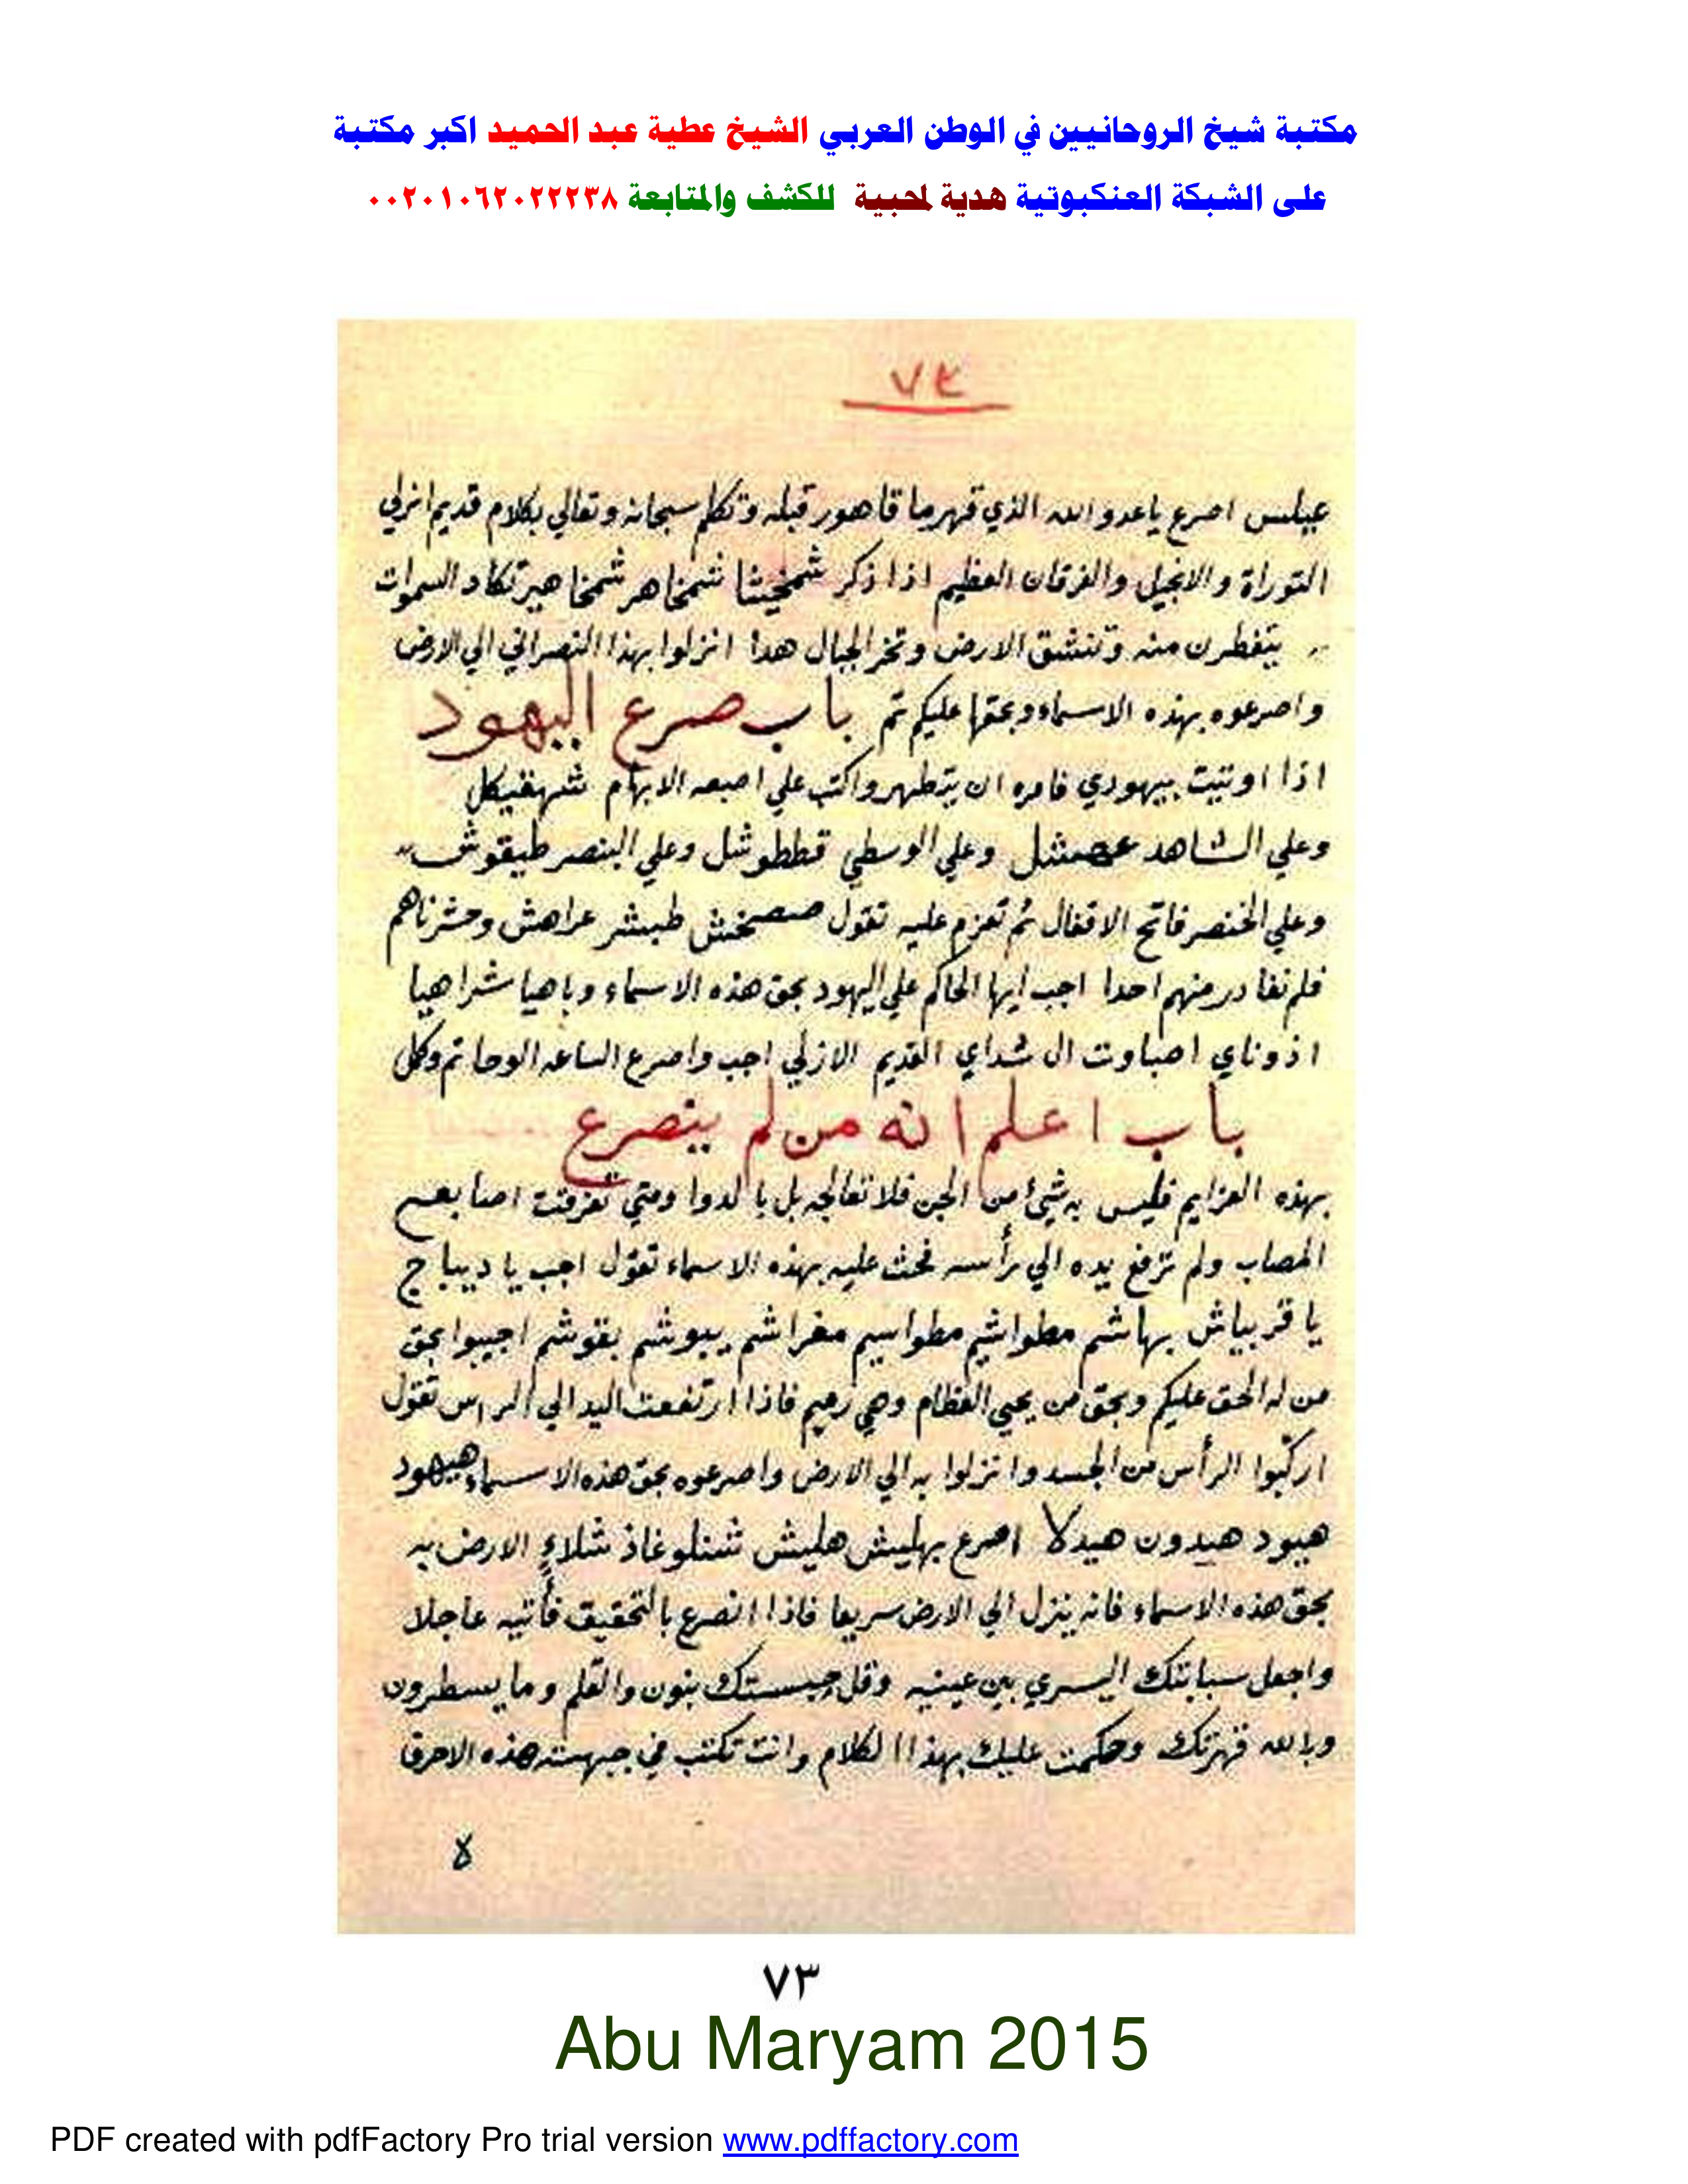 مكتبة شيخ الروحانيين في الوطن العربي الشيخ عطية عبد الحميد اكبر مكتبة
على الشبكة العنكبوتية هدية لمحبية للكشف والمتابعة ٠٠٢٠١٠٦٢٠٢٢٢٣٨
٧٣
اصرع ياعدو الله الذي قهر ما قاهور قبله وتكلم سبحانه وتعالي بكلام قديم ازلي
التوراة والانجيل والفرقان العظيم اذا ذكر شمخيثا شمخاهر شمخاهير تكاد السموات
يتفطرن منه وتنشق الارض وتخر الجبال هدا انزلوا بهذا النصراني الي الارض
واصرعوه بهذه الاسماء وبحقها عليكم تم باب صرع اليهود
اذا اوتيت بيهودي فامره ان يتطهر واكتب علي اصبعه الابهام شهفيكل
وعلي الشاهد وعلي الوسطي قططوشل وعلي البنصر طيقوش
وعلي الخنصر فاتح الاقفال ثم تعزم عليه تقول طبشر عراهش وحشرناهم
فلم نغادر منهم احدا اجب ايها الحاكم علي اليهود بحق هذه الاسماء وباهيا شراهيا
اذوناي اصباوت ال شداي القديم الازلي اجب واصرع الساعه الوحا تم وكل
باب اعلم انه من لم ينصرع
بهذه العزايم فليس به شيئ من الجن فلا تعالجه بل بالدوا ومتي تفرقت اصابعه
المصاب ولم ترفع يده الي رأسه فحث عليه بهذه الاسماء تقول اجب يا ديباج
يا قربياش بهاشم مطواشيم مطواسيم مغراشم يبوشم بقوشم اجيبوا بحق
من له الحق عليكم وبحق من يحيي العظام وهي رميم فاذا ارتفعت اليد الي الراس تقول
اركبوا الرأس من الجسد وانزلوا به الي الارض واصرعوه بحق هذه الاسماء هيهود
هيود هيدون هيدلا اصرع بهليش هليش شنلوغاذ شلاء الارض به
بحق هذه الاسماء فانه ينزل الي الارض سريعا فاذا انصرع بالتحقيق فأتيه عاجلا
واجعل سبابتك اليسري بين عينيه وقل حبستك بنون والقلم وما يسطرون
وبالله قهرتك وحكمت عليك بهذا الكلام وانت تكتب في جبهته هذه الاحرف
٧٣
Abu Maryam 2015
PDF created with pdfFactory Pro trial version www.pdffactory.com